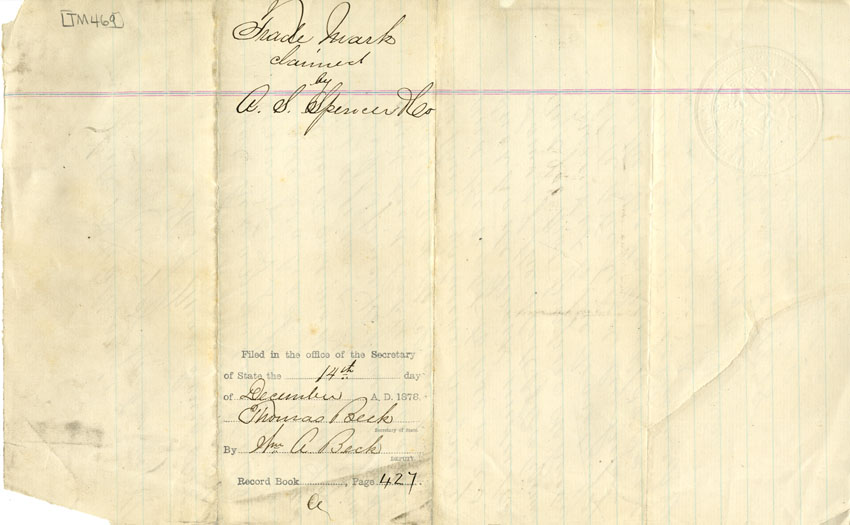 [TM469]
Trade Mark
claimed
by
A. S. Spencer & Co
Filed in the office of the Secretary
of State the 14th day
of December A. D. 1878.
Thomas Beck
Secretary of State
By Wm A. Beck
DEPUTY
Record Book , Page 427.